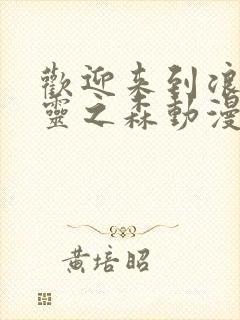 歡迎来到浪
靈之森動漫
黃培昭